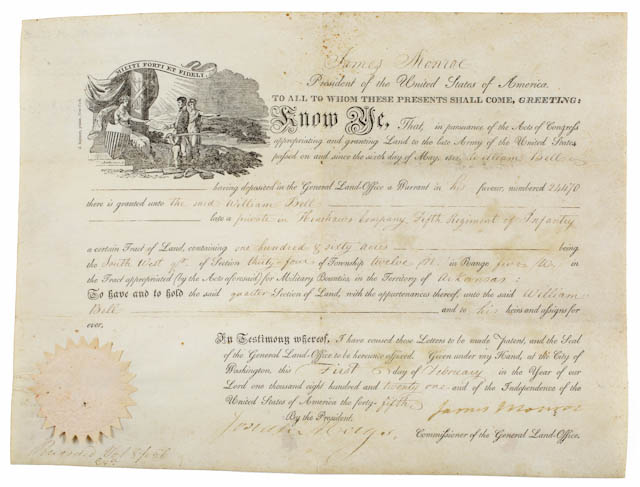 MILITI FORTI ET FIDELI.
James Monroe
President of the United States of America.
TO ALL TO WHOM THESE PRESENTS SHALL COME, GREETING:
Know Ye, That, in pursuance of the Acts of Congress
appropriating and granting Land to the late Army of the United States
passed on and since the sixth day of May, 1812, William Bell
having deposited in the General Land-Office a Warrant in his favour, numbered 24470
there is granted unto the said William Bell
late a private in Henshaws Company, Fifth Regiment of Infantry
a certain Tract of Land, containing one hundred & sixty acres being
the South West qr. of Section thirty-four of Township twelve N. in Range five W. in
the Tract appropriated (by the Acts aforesaid) for Military Bounties, in the Territory of Arkansas:
To have and to hold the said quarter Section of Land, with the appurtenances thereof, unto the said William
Bell and to his heirs and assigns for
ever.
In Testimony whereof, I have caused these Letters to be made Patent, and the Seal
of the General Land-Office to be hereunto affixed. Given under my Hand, at the City of
Washington, this First day of February in the Year of our
Lord one thousand eight hundred and twenty one and of the Independence of the
United States of America the forty-fifth
James Monroe
By the President.
Josiah Meigs. Commissioner of the General Land-Office.
Recorded Vol